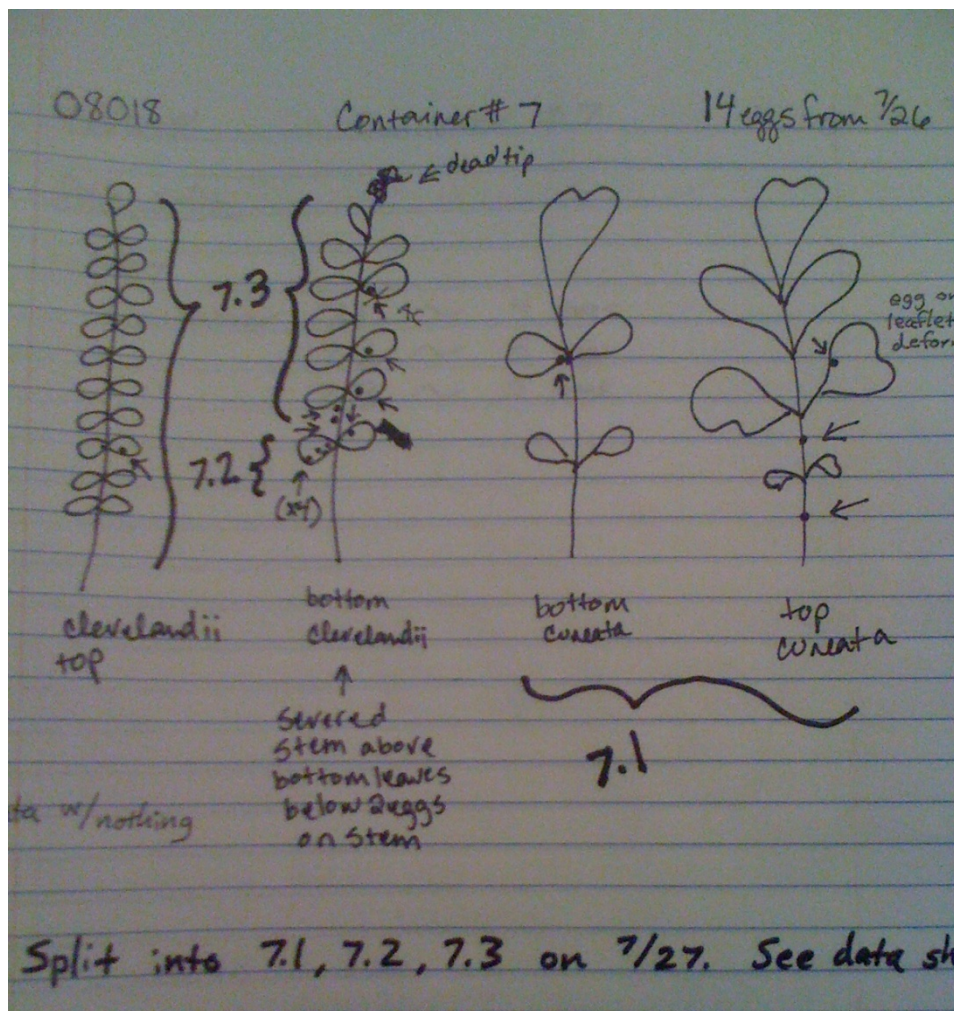 08018 Container # 7 14 eggs from 7/26
← dead tip
7.3
egg on
leaflet
defor
7.2
(x4)
clevelandii
top
bottom
clevelandii
bottom
cuneata
top
cuneata
Severed
stem above
bottom leaves
below 2 eggs
on stem
7.1
ta w/nothing
Split into 7.1, 7.2, 7.3 on 7/27. See data sh